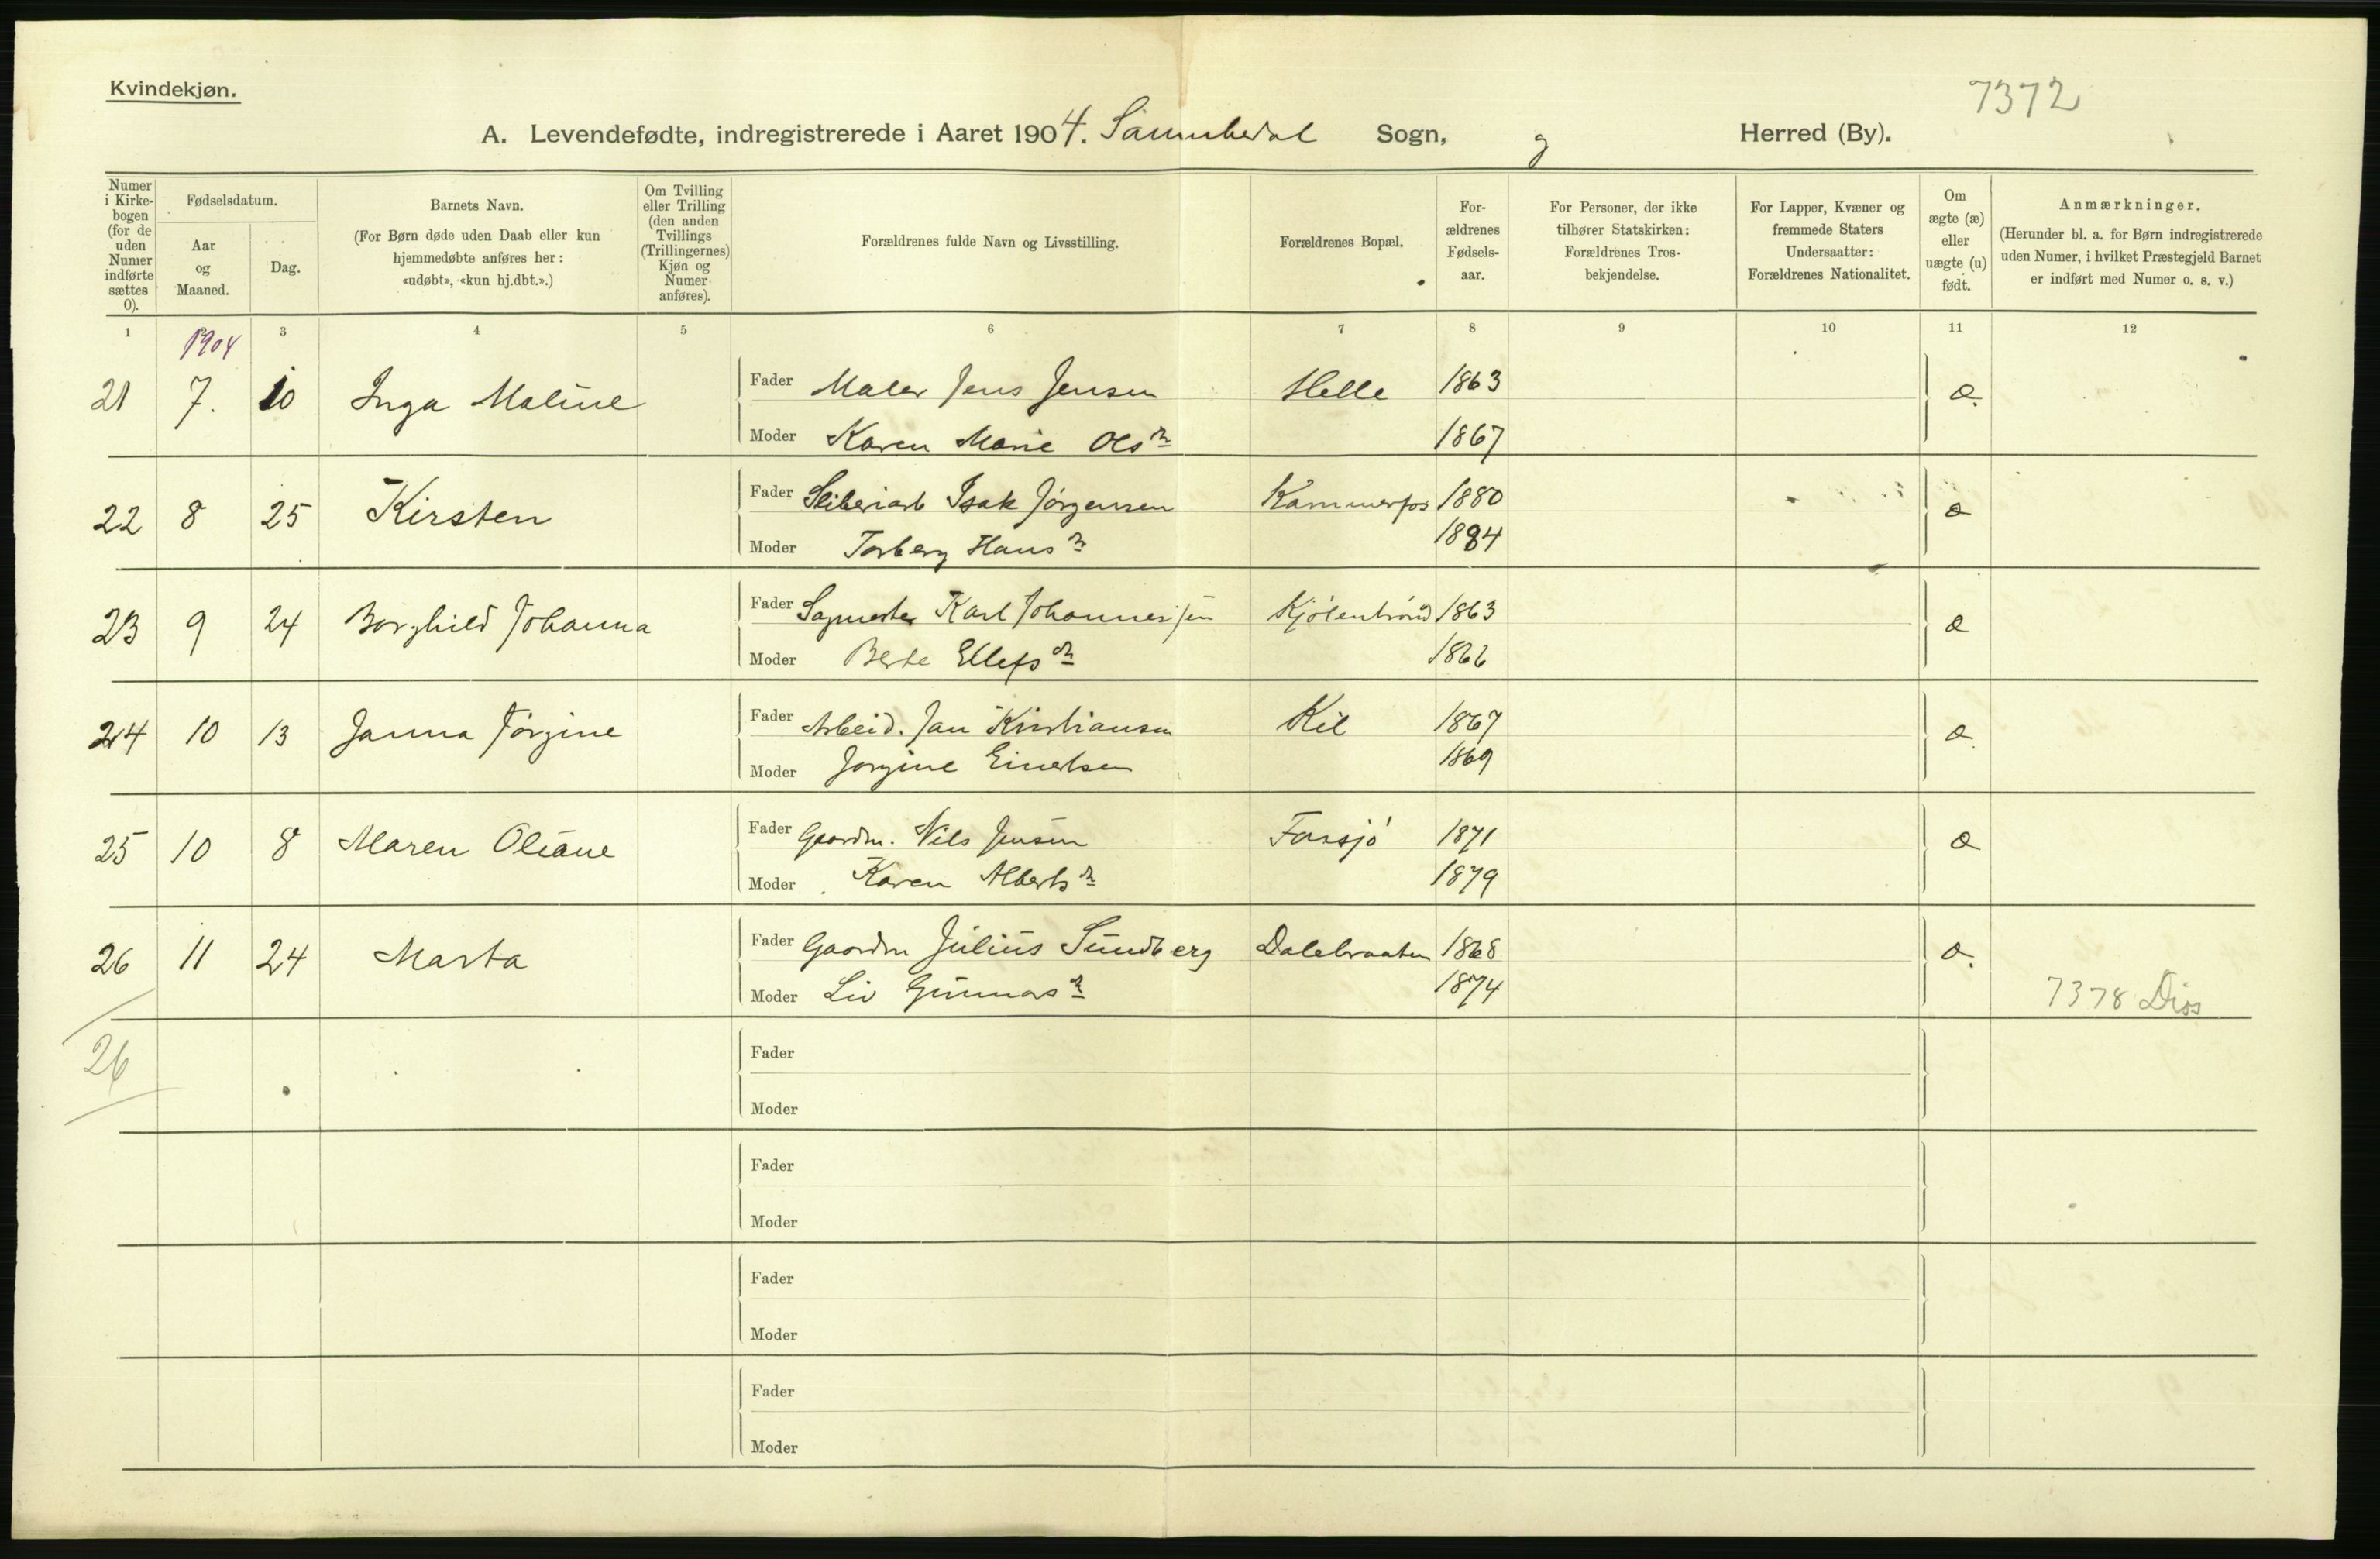 Kvindekjøn.
7372
A. Levendefødte, indregistrerede i Aaret 1904. Sannikedal Sogn, g Herred (By).
Numer i Kirkebogen (for de uden Numer indførte sættes 0).
Fødselsdatum.
Aar og Maaned.
Dag.
Barnets Navn.
(For Børn døde uden Daab eller kun hjemmedøbte anføres her: «udøbt», «kun hj.dbt.».)
Om Tvilling eller Trilling (den anden Tvillings (Trillingernes) Kjøn og Numer anføres).
Forældrenes fulde Navn og Livsstilling.
Forældrenes Bopæl.
For-ældrenes Fødsels-aar.
For Personer, der ikke tilhører Statskirken: Forældrenes Tros-bekjendelse.
For Lapper, Kvæner og fremmede Staters Undersaatter: Forældrenes Nationalitet.
Om ægte (æ) eller uægte (u) født.
Anmærkninger.
(Herunder bl. a. for Børn indregistrerede uden Numer, i hvilket Præstegjeld Barnet er indført med Numer o. s. v.)
1 3 4 5 6 7 8 9 10 11 12
1904
21 7. 10 Inga Maline Fader Maler Jens Jensen Helle 1863 æ.
Moder Karen Marie Olsdr 1867
22 8 25 Kirsten Fader Sliberiarb Isak Jørgensen Kammerfos 1880 æ
Moder Torberg Hansdr 1884
23 9 24 Borghild Johanna Fader Sagmester Karl Johannessen Kjølenbrønd 1863 æ
Moder Berte Ellefsdr 1866
24 10 13 Janna Jørgine Fader Arbeid. Jan Kristiansen Kil 1867 æ
Moder Jørgine Einertsen 1869
25 10 8 Maren Oliane Fader Gaardm. Nils Jensen Farsjø 1871 æ
Moder Karen Albertsdr 1879
26 11 24 Marta Fader Gaardm Julius Sundberg Dalebraaten 1868 æ.
Moder Liv Gunnarsdr 1874
7378 Diss
26
Fader
Moder
Fader
Moder
Fader
Moder
Fader
Moder